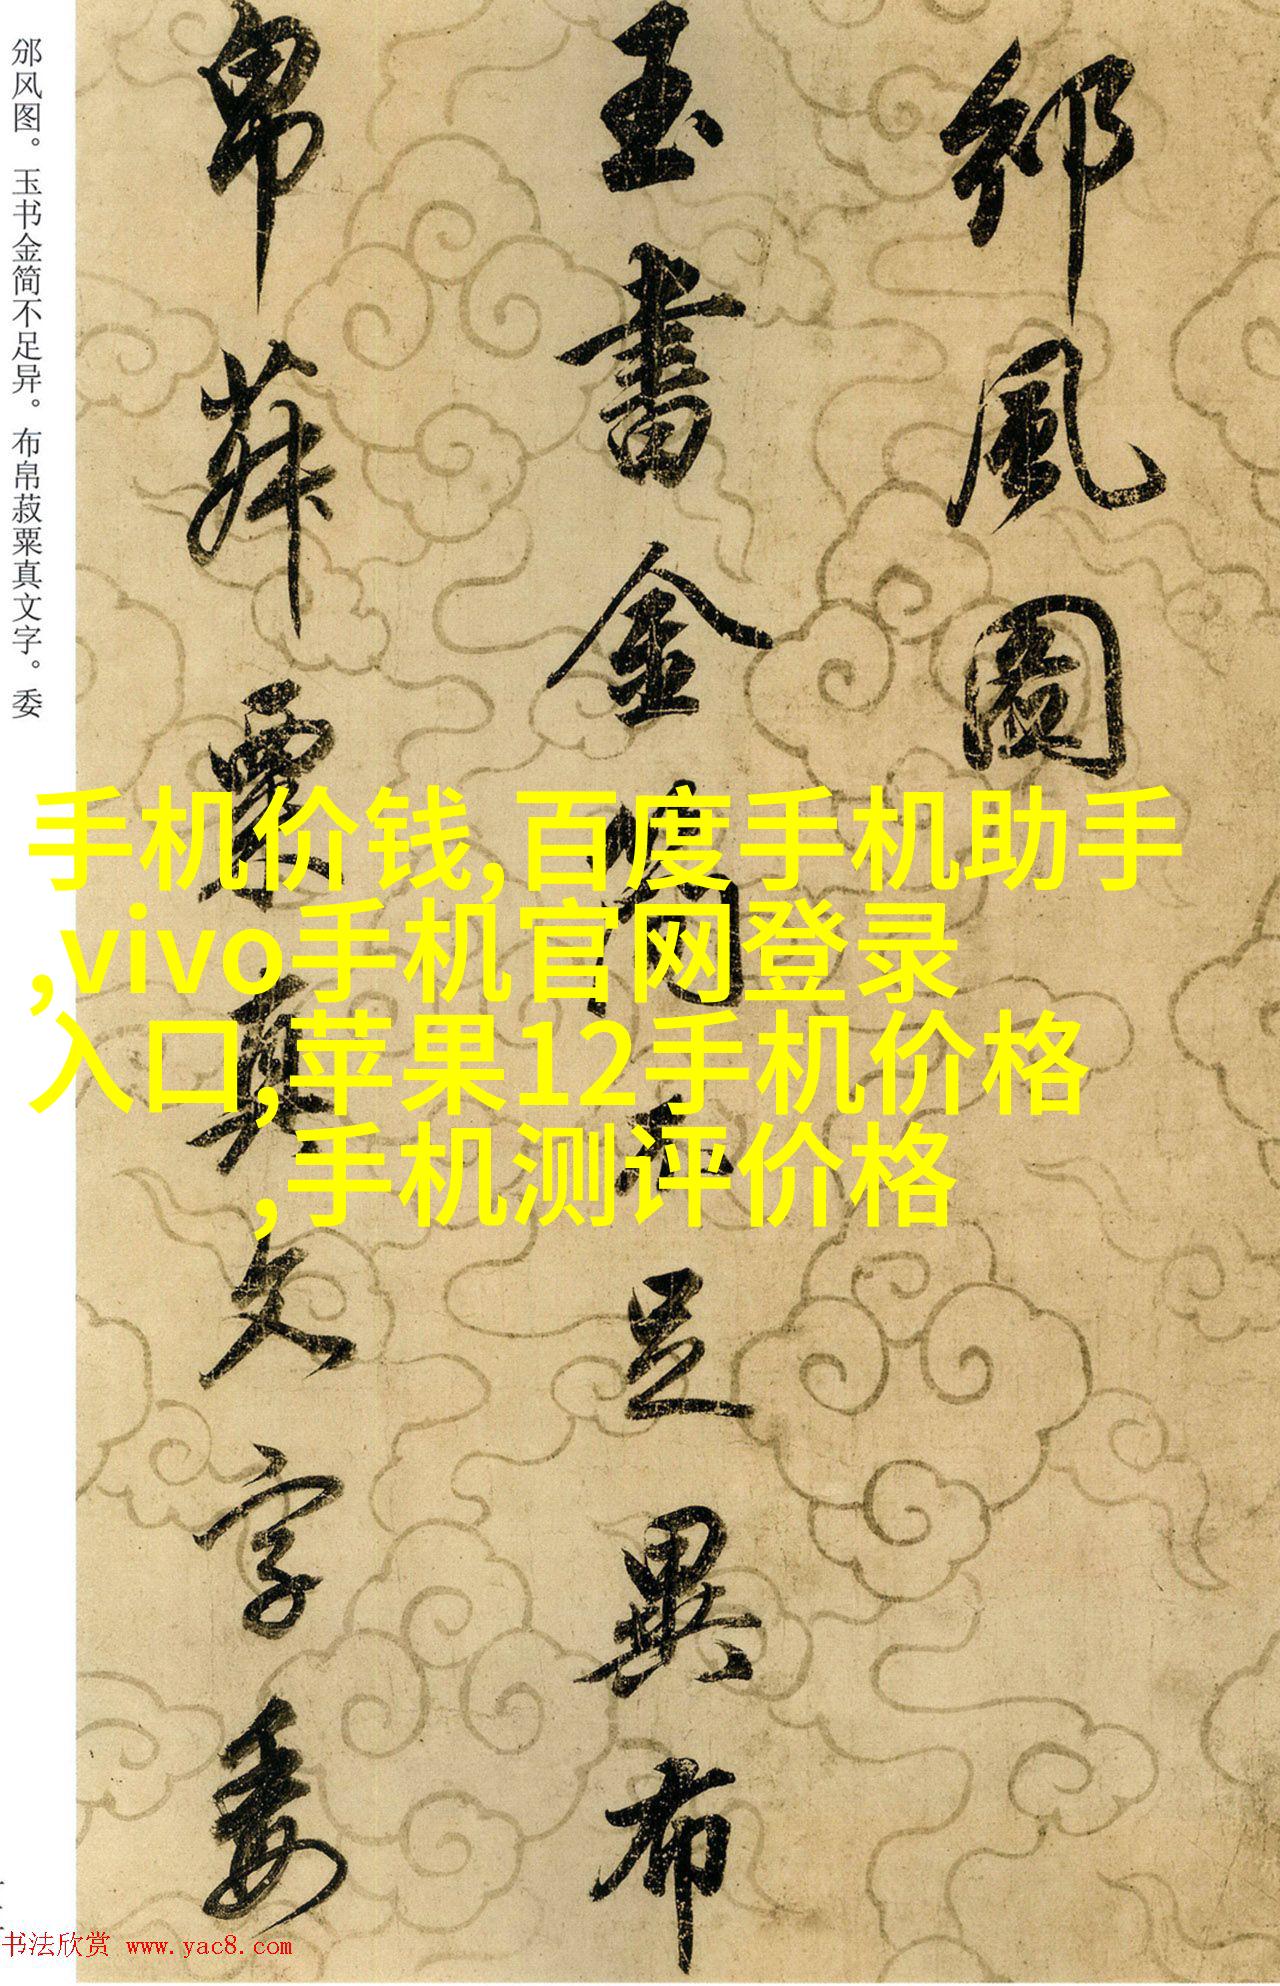 邠风图。玉书金简不足异。布帛菽粟真文字。委
邠風圖
玉書金簡不足異布
帛菽粟真文字委
手机价钱,百度手机助手
,vivo手机官网登录
入口,苹果12手机价格
,手机测评价格
书法欣赏 www.yac8.com